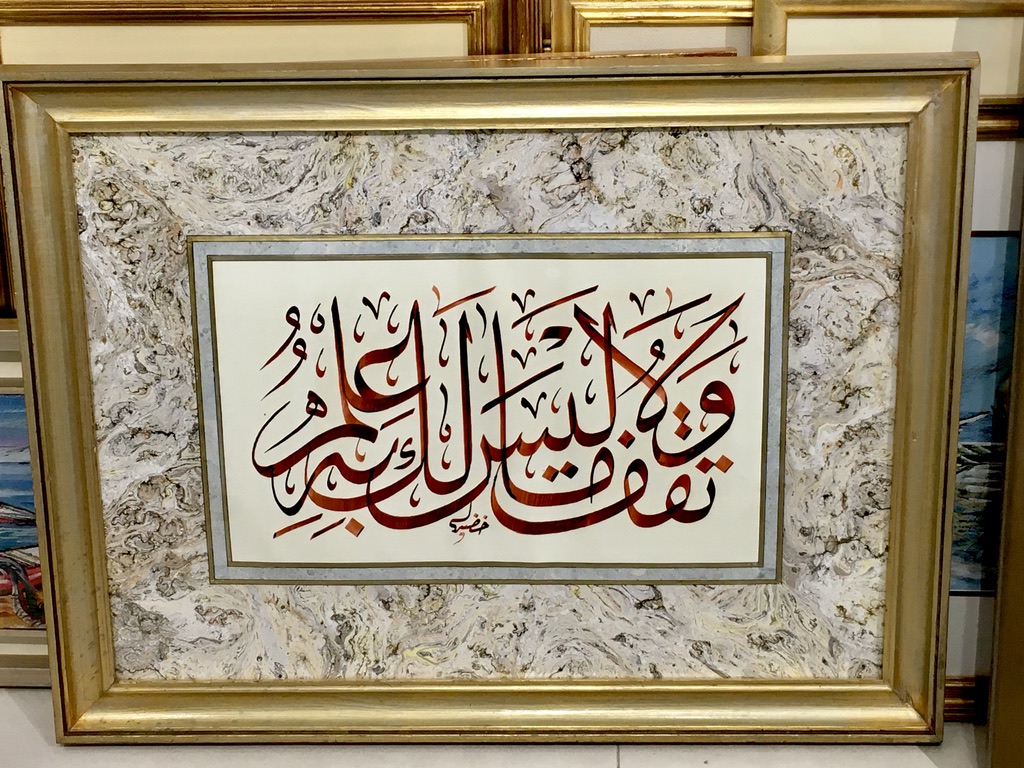 وَلَا تَقْفُ مَا لَيْسَ لَكَ بِهِ عِلْمٌ